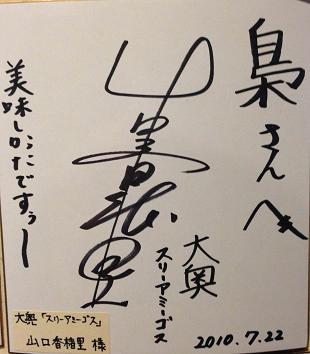 梟さんへ
大奥
スリーアミーゴス
美味しかったですぅー
2010.7.22
大奥「スリーアミーゴス」
山口香緒里 様